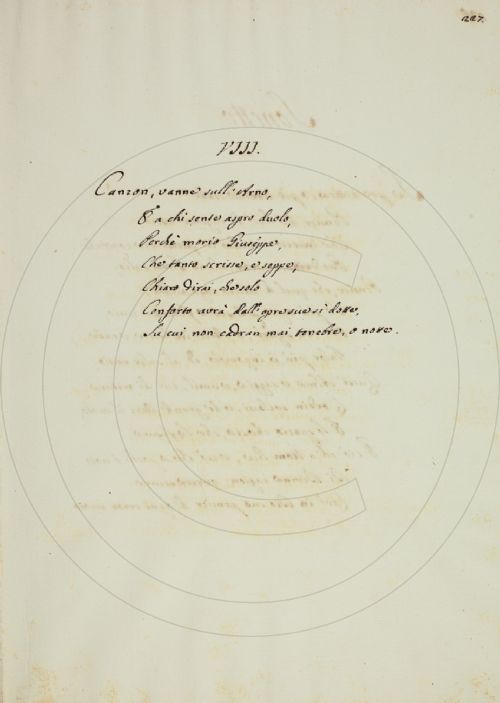 227.
VIII.
Canzon, vanne sull'Arno,
E a chi sente aspro duolo,
Perchè morio Giuseppe,
Che tanto scrisse, e seppe,
Chiaro dirai, che solo
Conforto avrà dall'opre sue sì dotte,
Su cui non cadran mai tenebre, o notte.